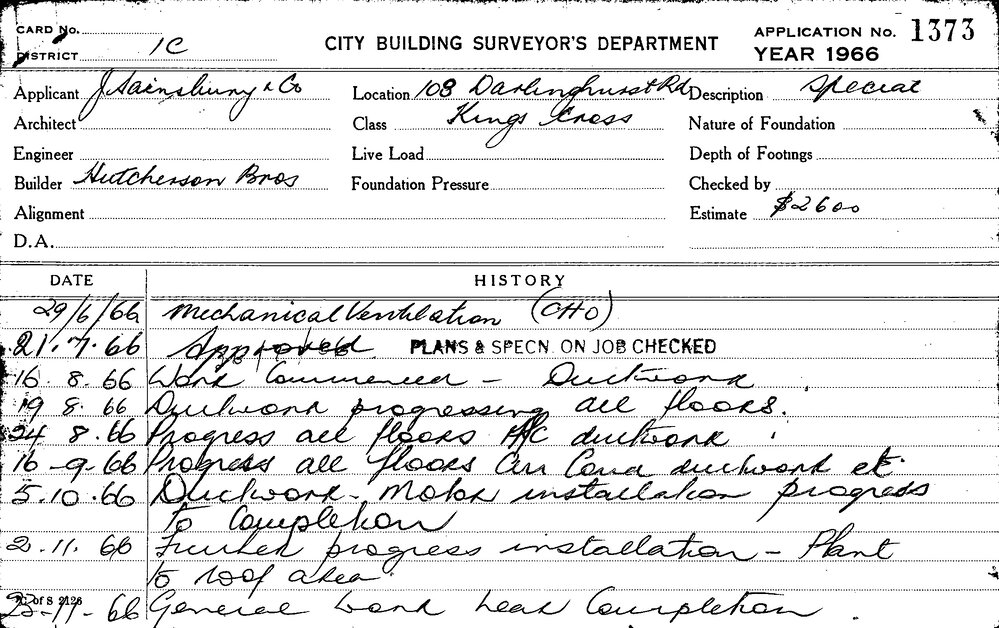 CARD No.
DISTRICT 1C
CITY BUILDING SURVEYOR'S DEPARTMENT
APPLICATION No. 1373
YEAR 1966
Applicant J Sainsbury & Co
Location 108 Darlinghurst Rd
Description Special
Architect
Class Kings Cross
Nature of Foundation
Engineer
Live Load
Depth of Footings
Builder Hutcherson Bros
Foundation Pressure
Checked by
Alignment
Estimate $2600
D.A.
DATE HISTORY
29/6/66 Mechanical Ventilation (CHO)
21.7.66 Approved PLANS & SPECN. ON JOB CHECKED
16.8.66 Work Commenced - Ductwork
19 8.66 Ductwork progressing all floors.
24 8.66 Progress all floors A/C ductwork.
16-9-66 Progress all floors Air Cond ductwork etc.
5.10.66 Ductwork - Motor installation progress
to Completion
2.11.66 Further progress installation - Plant
to roof area.
23-11-66 General work near Completion
C of S 2126